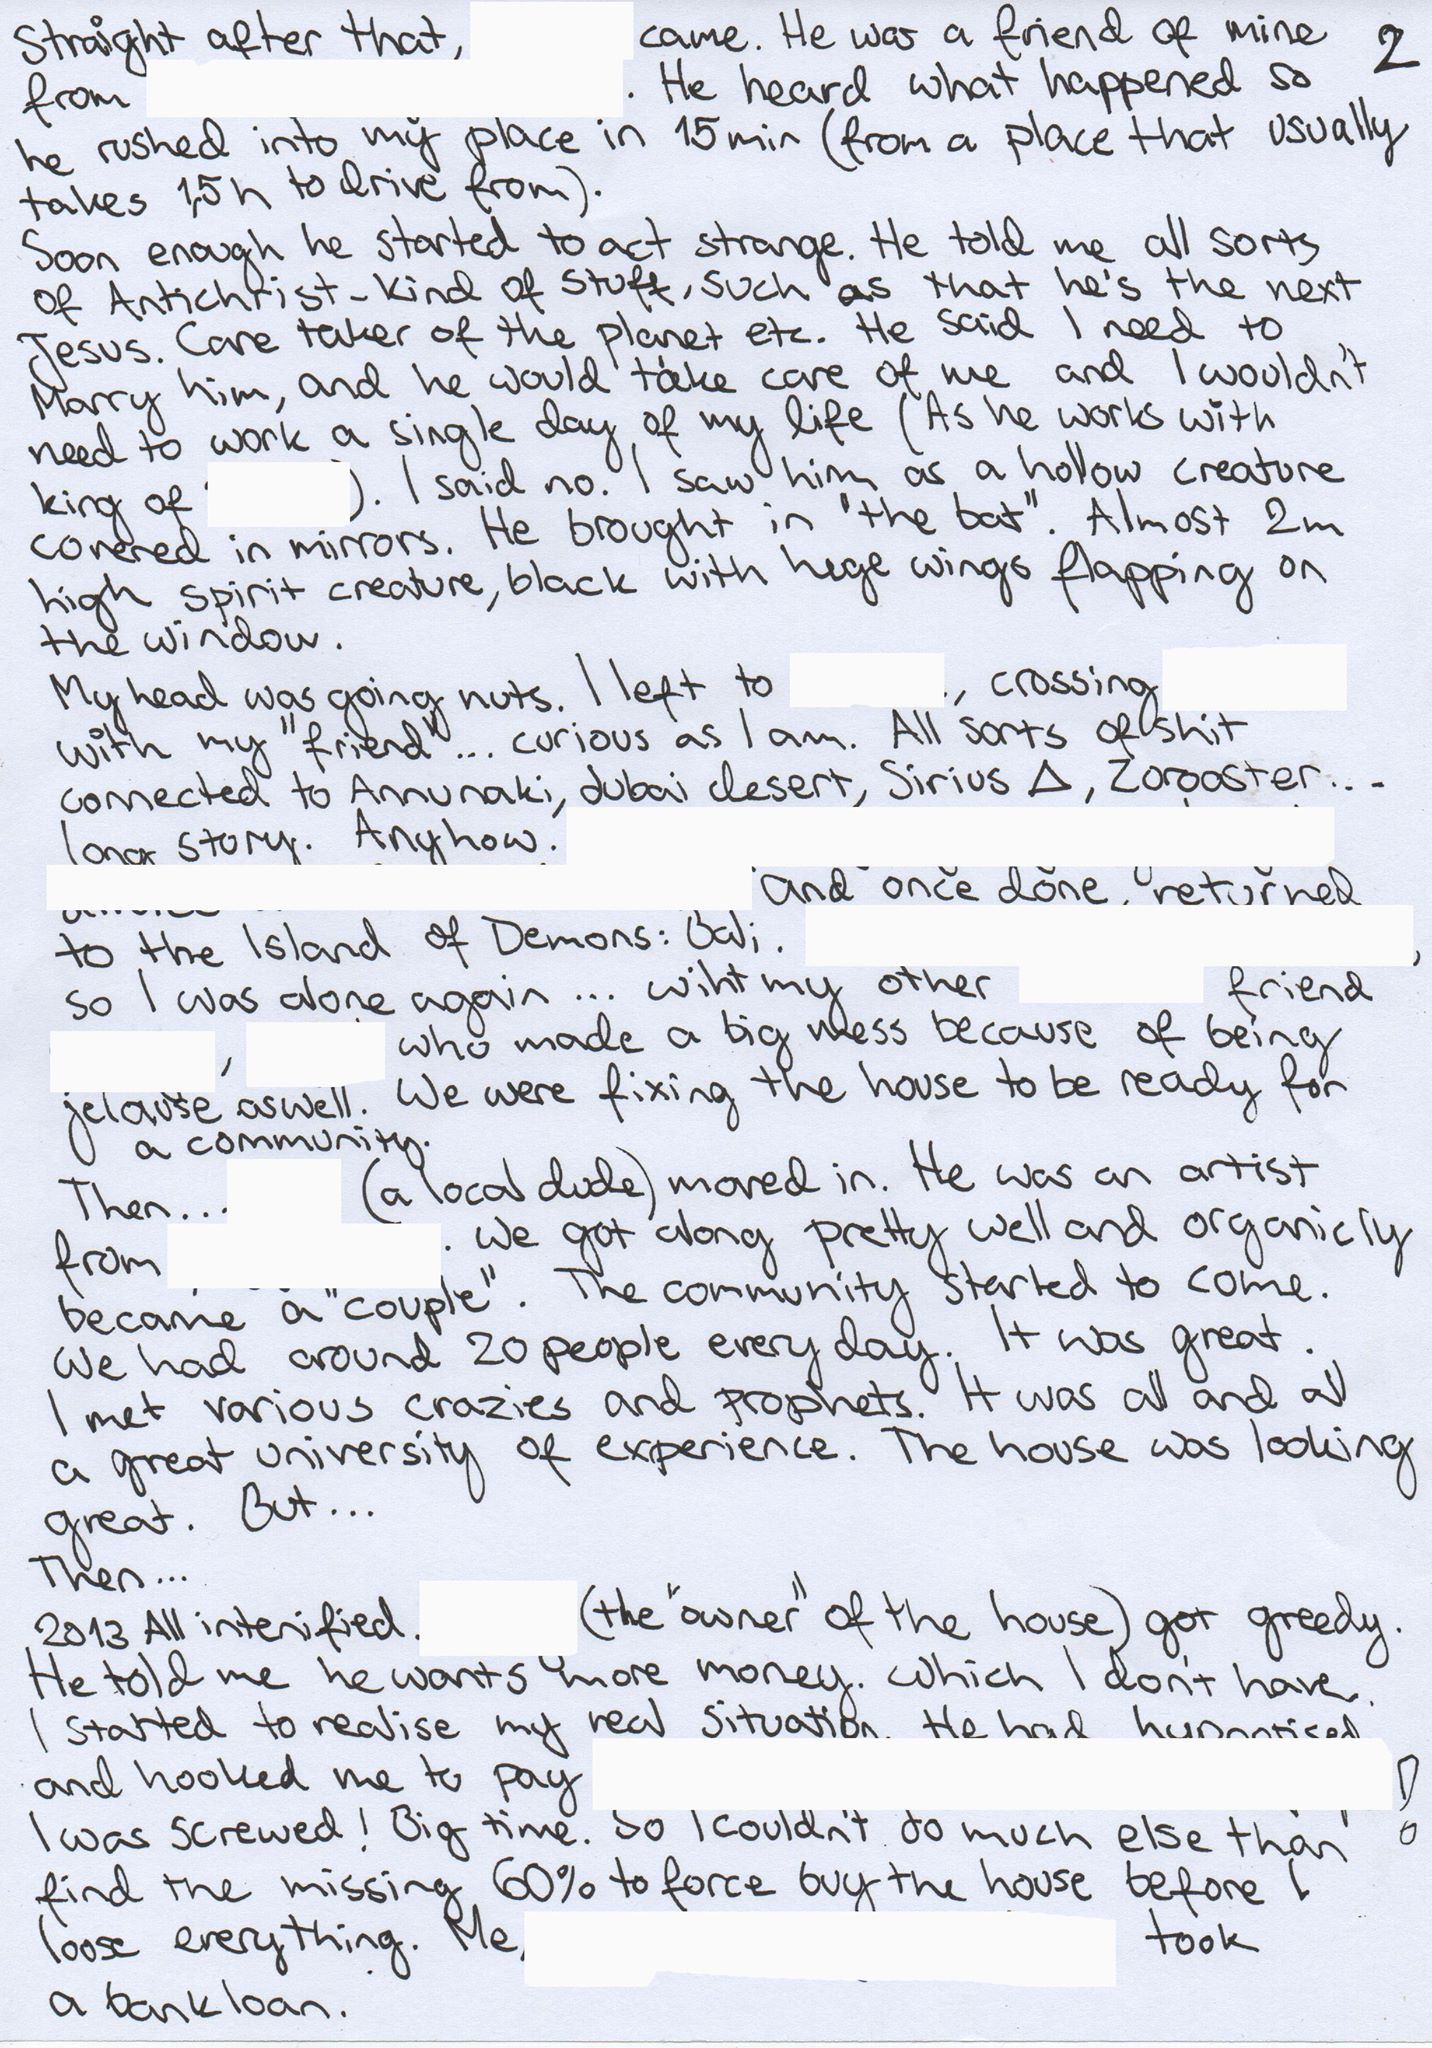 Straight after that, came. He was a friend of mine 2
from . He heard what happened so
he rushed into my place in 15 min (from a place that usually
takes 1,5 h to drive from).
Soon enough he started to act strange. He told me all sorts
of Antichrist-kind of stuff, such as that he's the next
Jesus. Care taker of the planet etc. He said I need to
Marry him, and he would take care of me and I wouldn't
need to work a single day of my life (As he works with
king of ). I said no. I saw him as a hollow creature
covered in mirrors. He brought in "the bat". Almost 2m
high spirit creature, black with huge wings flapping on
the window.
My head was going nuts. I left to , crossing
with my "friend"... curious as I am. All sorts of shit
connected to Annunaki, dubai desert, Sirius Δ, Zoroaster...
long story. Anyhow.
and once done, returned
to the Island of Demons: Bali. ,
so I was alone again... wiht my other friend
, who made a big mess because of being
jelause aswell. We were fixing the house to be ready for
a community.
Then... (a local dude) moved in. He was an artist
from . We got along pretty well and organicly
became a "couple". The community started to come.
We had around 20 people every day. It was great.
I met various crazies and prophets. It was all and all
a great university of experience. The house was looking
great. But...
Then...
2013 All intenified. (the "owner" of the house) got greedy.
He told me he wants more money. which I don't have.
I started to realise my real situation. He had hypnotised
and hooked me to pay !
I was screwed! Big time. So I couldn't do much else than
find the missing 60% to force buy the house before I
loose everything. Me, took
a bank loan.